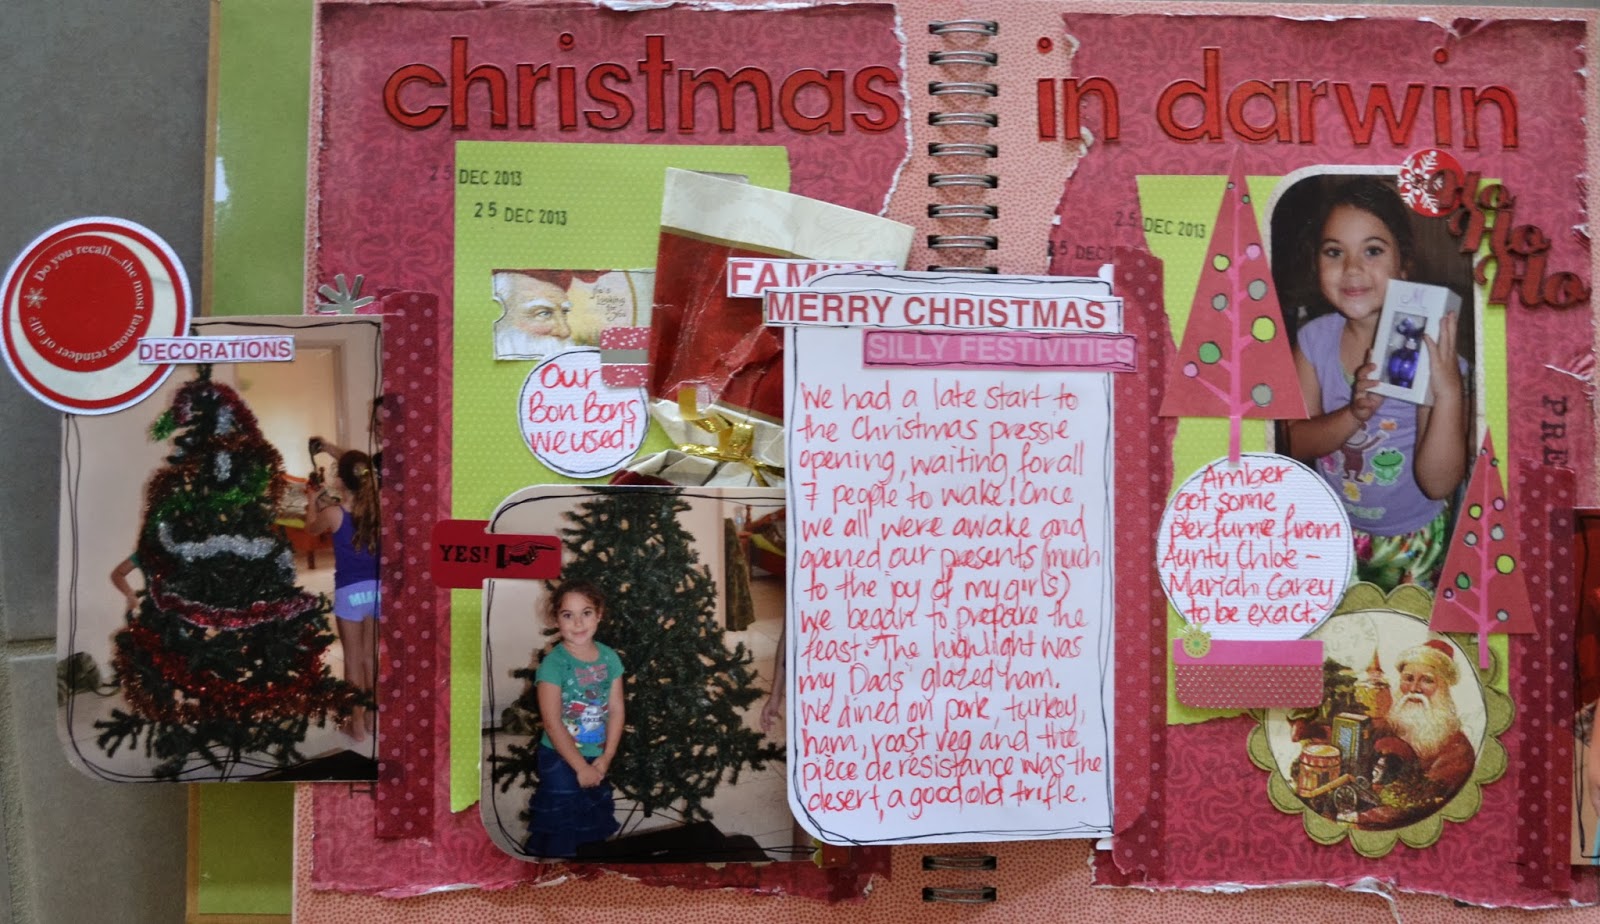 christmas in darwin
25 DEC 2013
25 DEC 2013
Do you recall....the most famous reindeer of all?
DECORATIONS
He's looking for you
Our
Bon Bons
we used!
YES!
FAMILY
MERRY CHRISTMAS
SILLY FESTIVITIES
We had a late start to
the Christmas pressie
opening, waiting for all
7 people to wake! Once
we all were awake and
opened our presents (much
to the joy of my girls)
we began to prepare the
feast. The highlight was
my Dads' glazed ham.
We dined on pork, turkey,
ham, roast veg and the
pièce de resistance was the
desert, a good old trifle.
25 DEC 2013
25 DEC
Ho
Ho
Ho
PRE
M
Amber
got some
perfume from
Aunty Chloe -
Mariah Carey
to be exact.